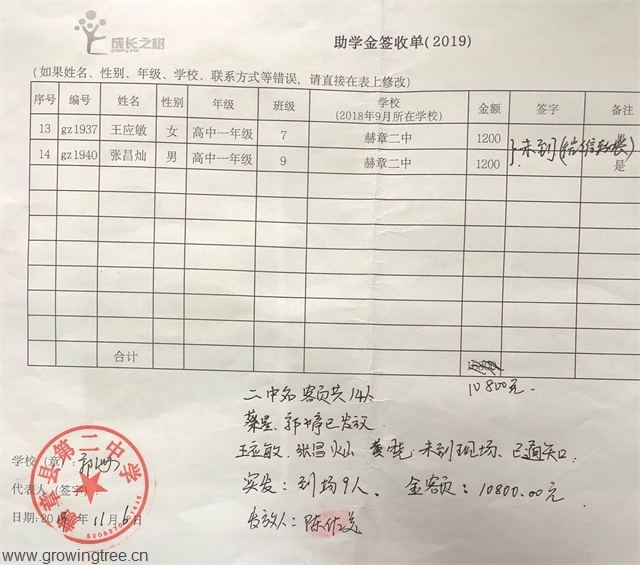 成长之树
助学金签收单(2019)
(如果姓名、性别、年级、学校、联系方式等错误，请直接在表上修改)
序号 编号 姓名 性别 年级 班级 学校 (2018年9月所在学校) 金额 签字 备注
13 gz1937 王应敏 女 高中一年级 7 赫章二中 1200 未到
14 gz1940 张昌灿 男 高中一年级 9 赫章二中 1200 是
合计
10800元.
二中名 客员共14人
蔡星、郭婷已发放
王应敏、张昌灿 黄 未到现场、已通知
实发: 到场9人. 金 : 10800.00元
发放人: 陈
学校(章):
代表人(签字)
日期: 2019年11月6日
赫章县第二中学
www.growingtree.cn